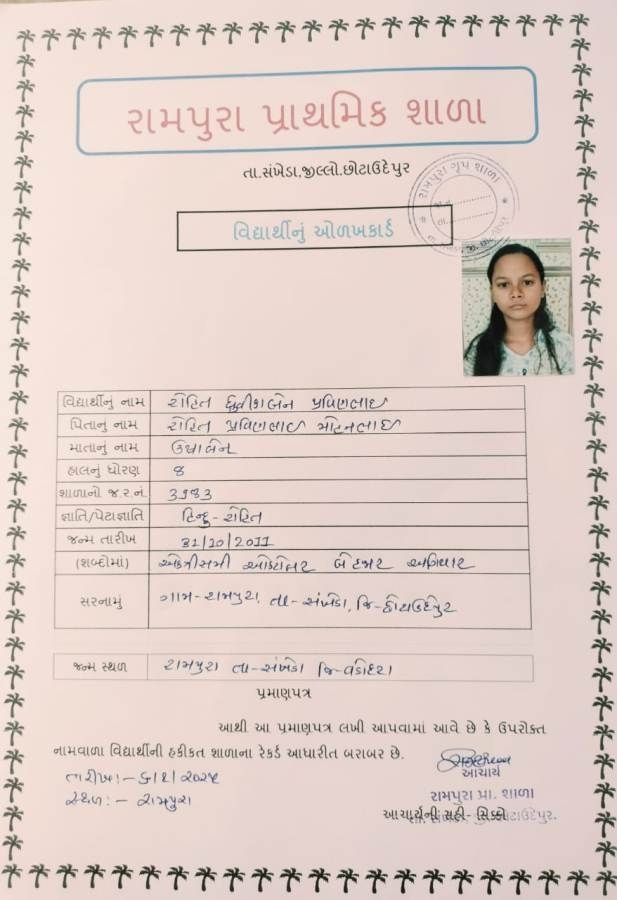 રામપુરા પ્રાથમિક શાળા
તા.સંખેડા,જીલ્લો.છોટાઉદેપુર
રામપુરા ગૃપ શાળા
વિદ્યાર્થીનું ઓળખકાર્ડ
વિદ્યાર્થીનું નામ રોહિત પ્રવિણભાઇ
પિતાનું નામ રોહિત પ્રવિણભાઇ મોહનભાઇ
માતાનું નામ ઉષાબેન
હાલનું ધોરણ ૪
શાળાનો જ.ર.નં.
જ્ઞાતિ/પેટાજ્ઞાતિ હિન્દુ - રોહિત
જન્મ તારીખ 31/10/2011
(શબ્દોમાં) એકત્રીસમી ઓક્ટોબર બે હજાર અગિયાર
સરનામું ગામ-રામપુરા, તા-સંખેડા, જિ-છોટાઉદેપુર
જન્મ સ્થળ રામપુરા તા-સંખેડા જિ-વડોદરા
પ્રમાણપત્ર
આથી આ પ્રમાણપત્ર લખી આપવામાં આવે છે કે ઉપરોક્ત
નામવાળા વિદ્યાર્થીની હકીકત શાળાના રેકર્ડ આધારીત બરાબર છે.
તારીખ:-
આચાર્ય
સ્થળ:- રામપુરા
રામપુરા પ્રા. શાળા
આચાર્યની સહી- સિક્કો